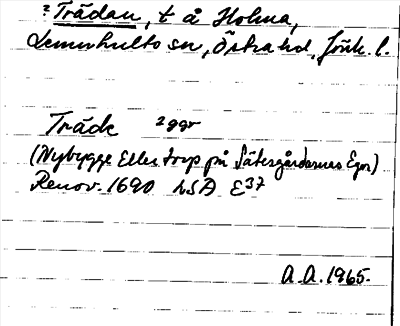 ? Trädan, t å Holma,
Lemnhults sn, Östra hd, Jönk. l.
Träde 2 ggr
(Nybygge Eller torp på Sätesgårdarnes Egor)
Renov. 1690 LSA E37
A.A. 1965.